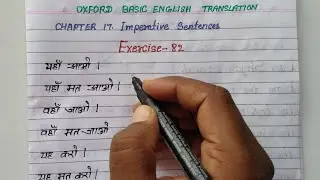 OXFORD BASIC ENGLISH TRANSLATION
CHAPTER 17. Imperative Sentences
Exercise-82
यहाँ आओ।
यहाँ मत आओ।
वहाँ जाओ।
वहाँ मत जाओ
यह करो।
यह मत करो।